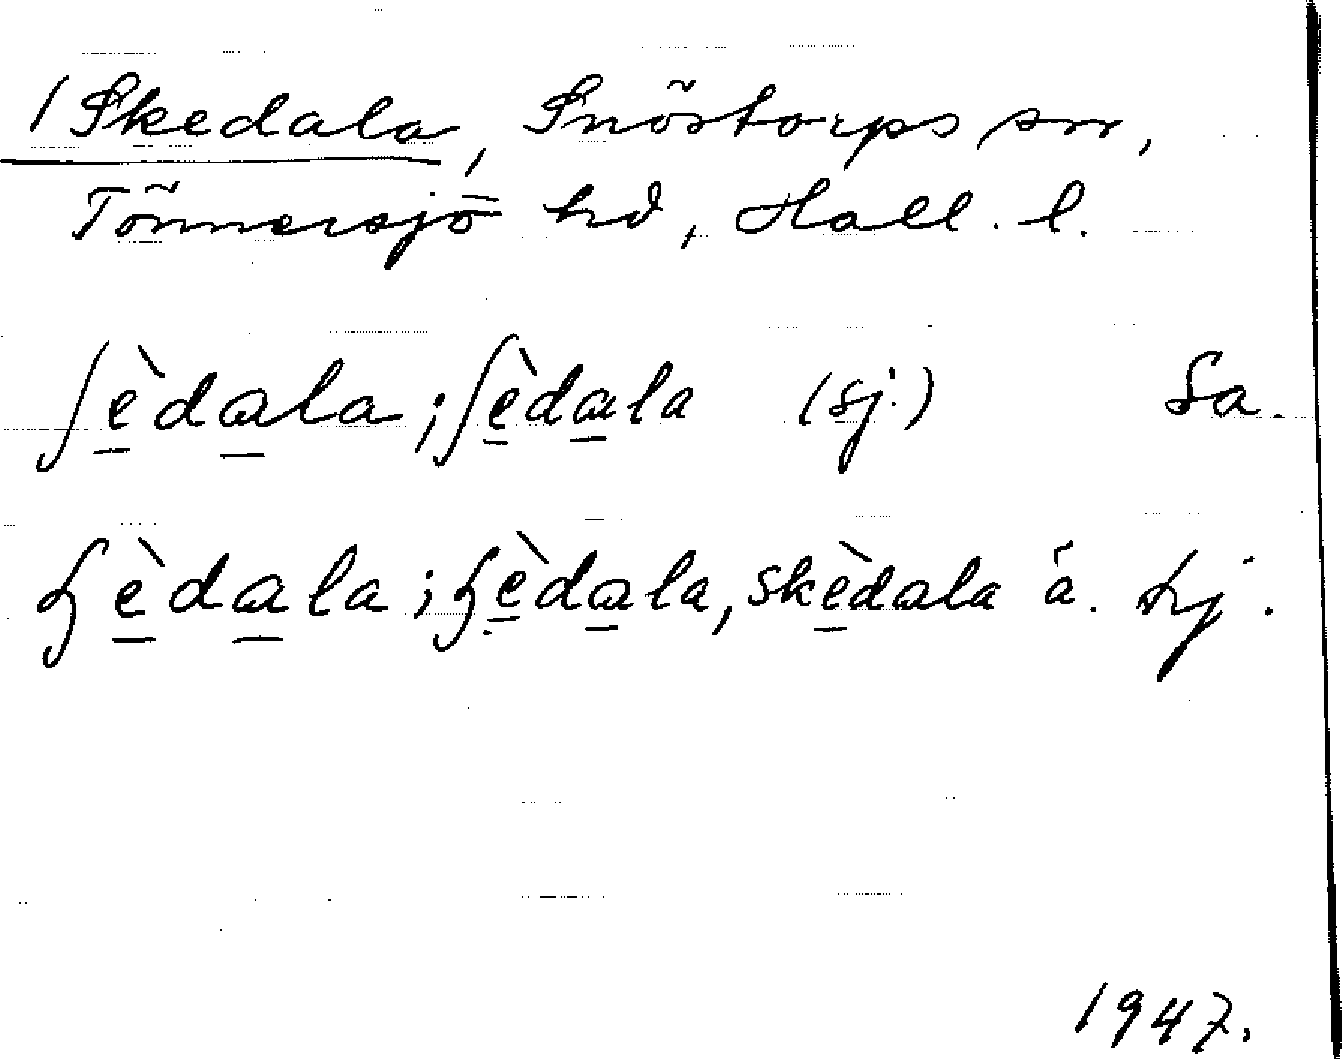 1 Skedala, Snöstorps sn,
Tönnersjö hd, Hall. l.
ʃèdala; ʃèdala (sj.) Sa.
ɧèdala; ɧèdala, skèdala á. hj.
1947.